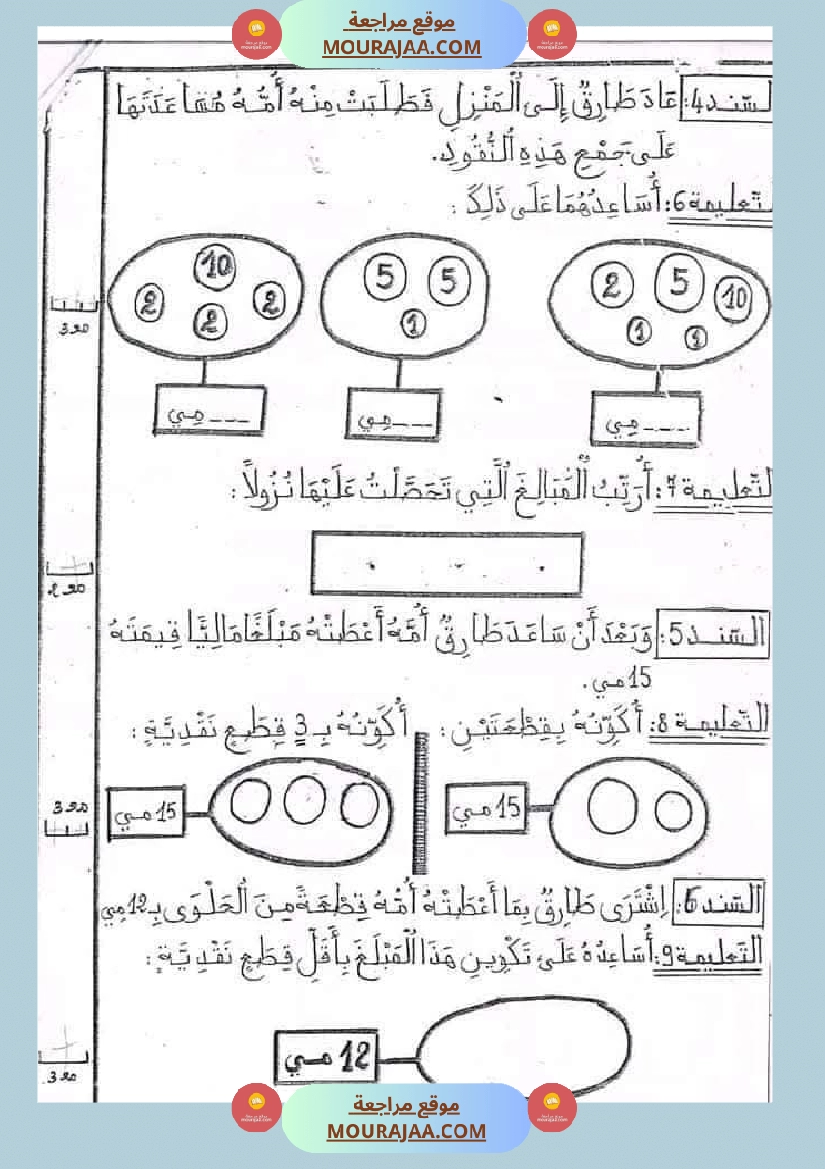 موقع مراجعة
MOURAJAA.COM
السّند4: عَادَ طَارِقٌ إِلَى ٱلْمَنْزِلِ فَطَلَبَتْ مِنْهُ أُمُّهُ مُسَاعَدَتَهَا
عَلَى جَمْعِ هَذِهِ ٱلنُّقُودِ.
التّعليمة 6: أُسَاعِدُهُمَا عَلَى ذَلِكَ :
2 5 10 1 1
5 5 1
10 2 2 2
---- مِي
---- مِي
---- مِي
التّعليمة 7: أُرَتِّبُ ٱلْمَبَالِغَ ٱلَّتِي تَحَصَّلْتُ عَلَيْهَا نُزُولاً :
السّند5: وَبَعْدَ أَنْ سَاعَدَ طَارِقٌ أُمَّهُ أَعْطَتْهُ مَبْلَغًا مَالِيًّا قِيمَتُهُ
15مي.
التّعليمة 8: أُكَوِّنُهُ بِقِطْعَتَيْنِ : أُكَوِّنُهُ بِـ 3 قِطَعٍ نَقْدِيَّةٍ :
15 مي
15 مي
السّند 6: اِشْتَرَى طَارِقٌ بِمَا أَعْطَتْهُ أُمُّهُ قِطْعَةً مِنَ ٱلْحَلْوَى بِـ 12مي
التّعليمة 9: أُسَاعِدُهُ عَلَى تَكْوِينِ هَذَا ٱلْمَبْلَغِ بِأَقَلِّ قِطَعٍ نَقْدِيَّةٍ :
12 مي
موقع مراجعة
MOURAJAA.COM